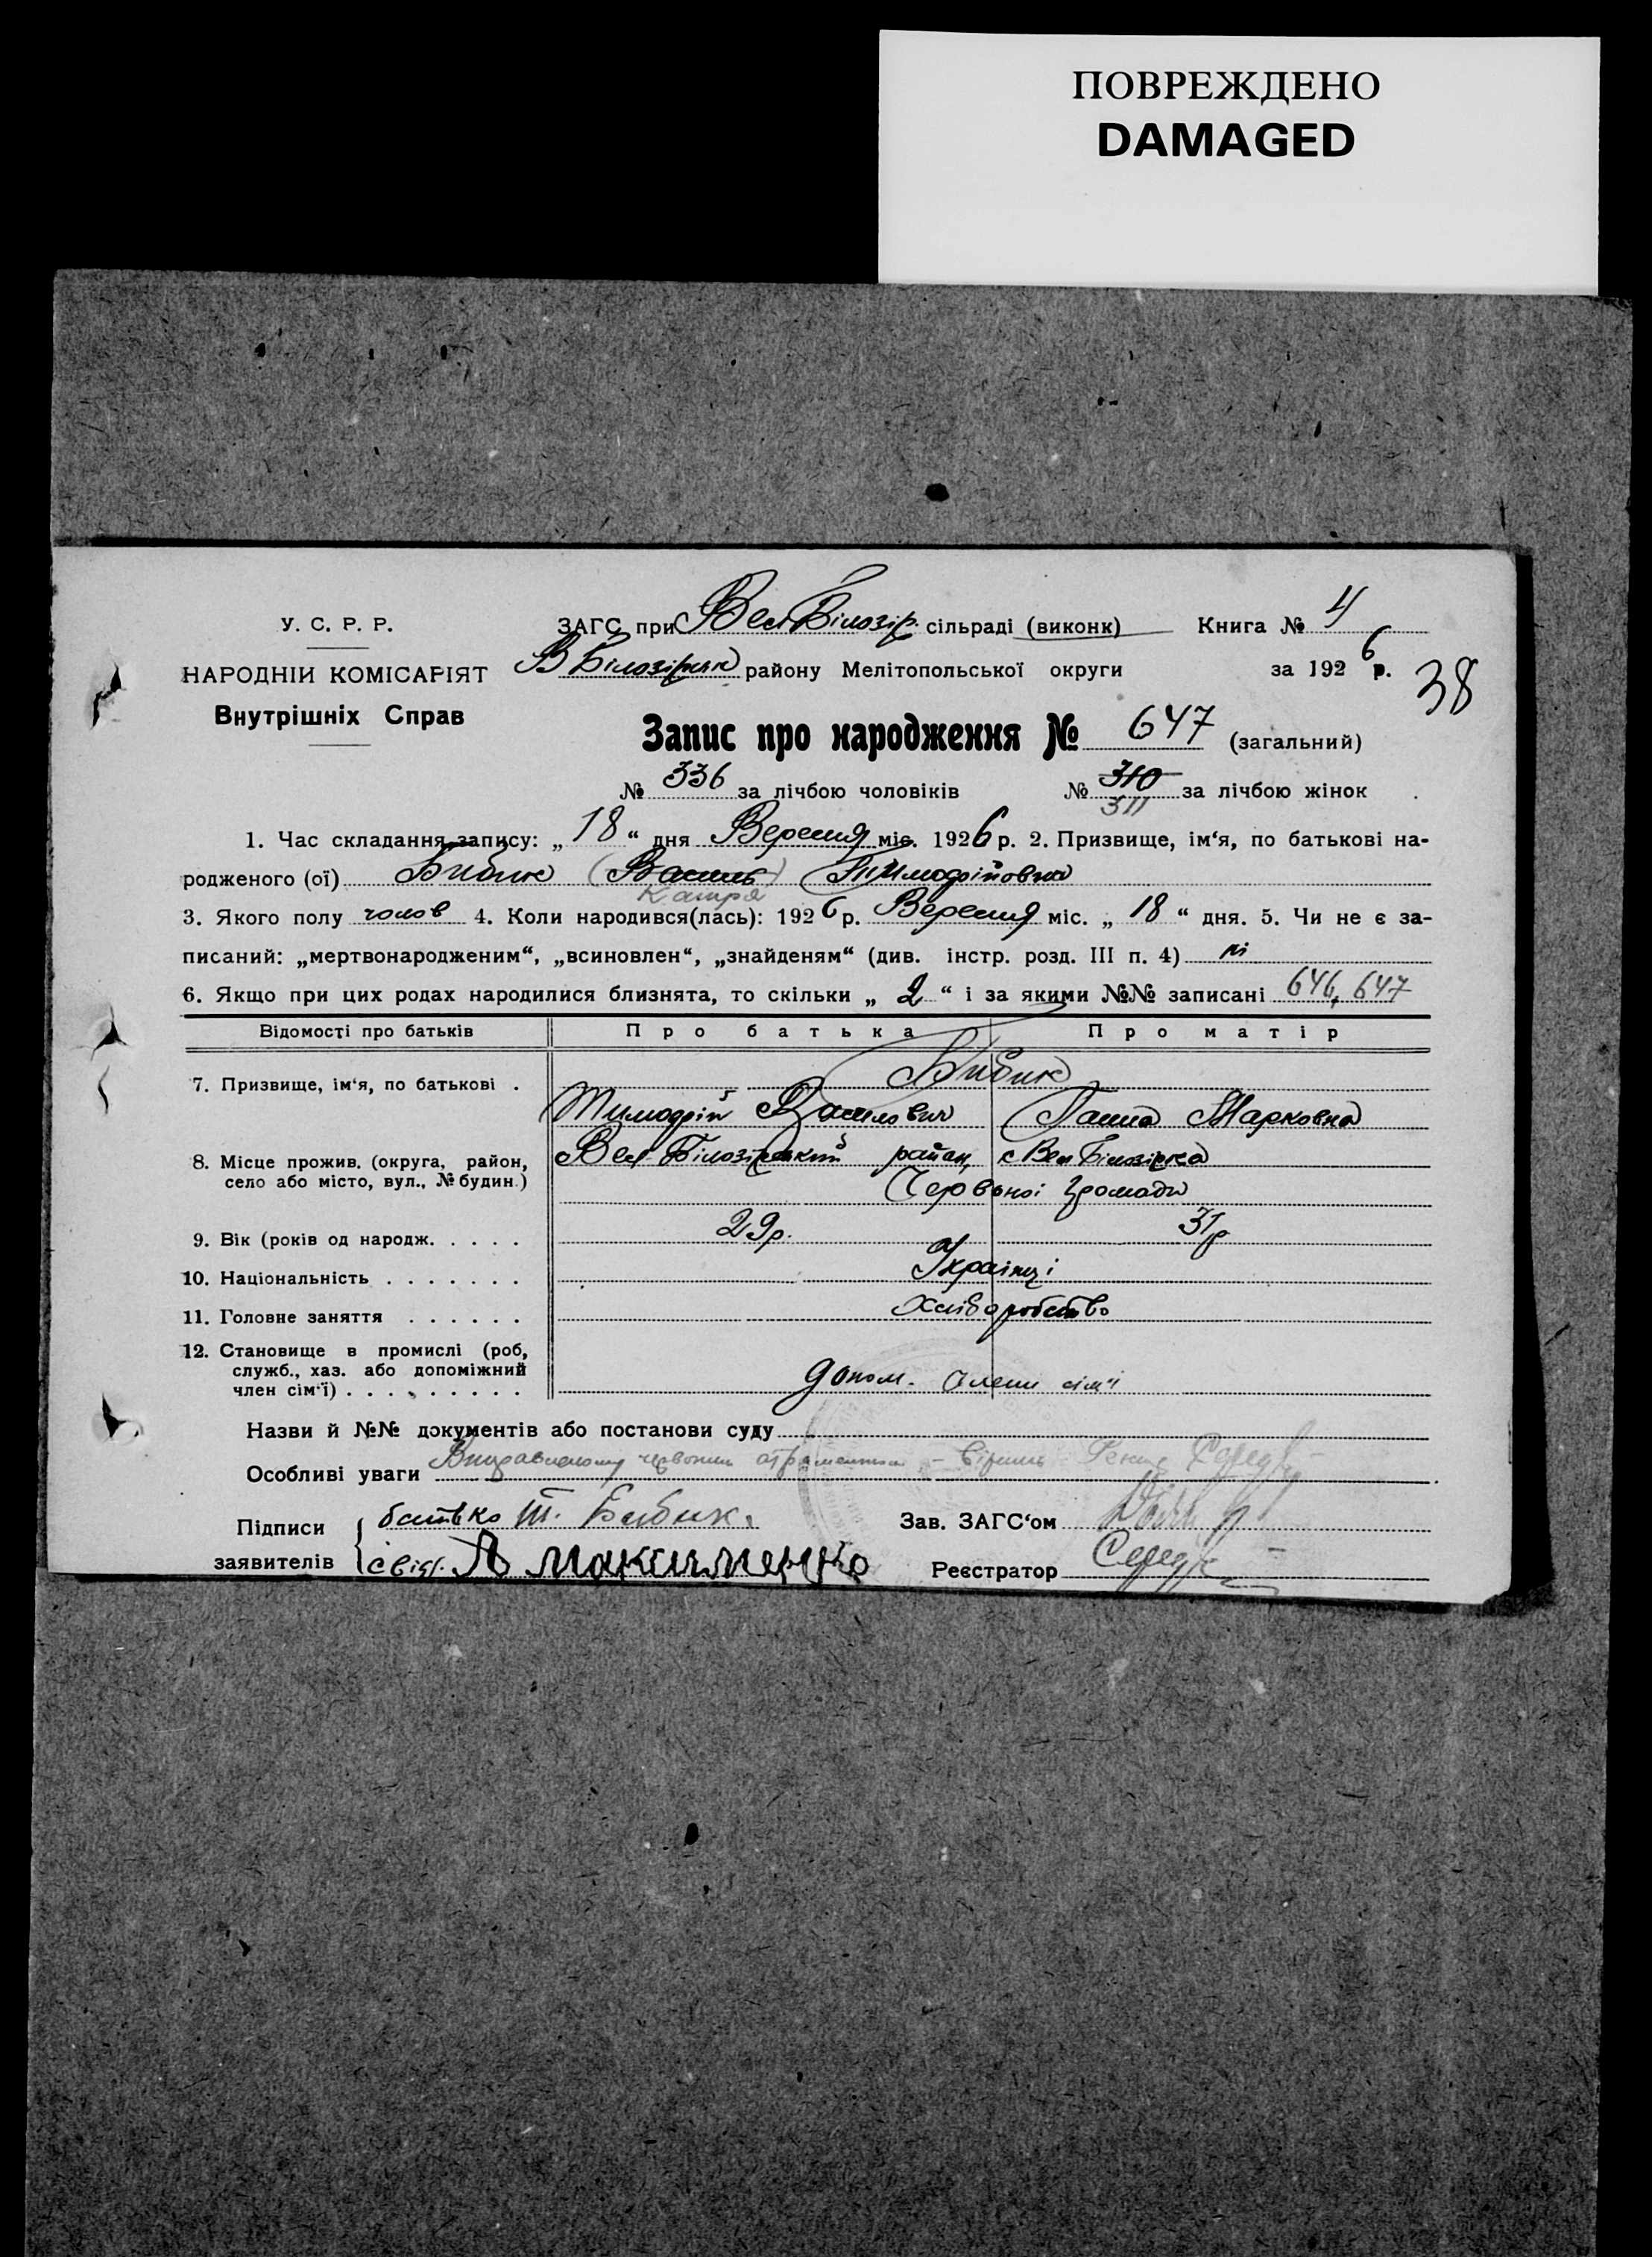 ПОВРЕЖДЕНО
DAMAGED
У. С. Р. Р.
НАРОДНІЙ КОМІСАРІЯТ
Внутрішніх Справ
ЗАГС при Вел Білозір. сільраді (виконк) Книга № 4
В Білозірськ району Мелітопольської округи за 1926 р.
38
Запис про народження № 647 (загальний)
№ 336 за лічбою чоловіків № 310 за лічбою жінок
311
1. Час складання запису: „ 18 “ дня Вересня міс. 1926 р. 2. Призвище, ім‘я, по батькові на-
родженого (ої) Бибик (Василь) Тимофійовна
Катря
3. Якого полу чолов 4. Коли народився(лась): 1926 р. Вересня міс. „ 18 “ дня. 5. Чи не є за-
писаний: „мертвонародженим“, „всиновлен“, „знайденям“ (див. інстр. розд. III п. 4) ні
6. Якщо при цих родах народилися близнята, то скільки „ 2 “ і за якими №№ записані 646, 647
Відомості про батьків Про батька Про матір
7. Призвище, ім‘я, по батькові . Бибик
Тимофій Василович Ганна Марковна
8. Місце прожив. (округа, район, село або місто, вул., № будин.) Вел Білозірський район, с Вел Білозірка
Червоної Громади
9. Вік (років од народж. . . . . 29р. 31р
10. Національність . . . . . . . Українці
11. Головне заняття . . . . . . Хліборобство
12. Становище в промислі (роб, служб., хаз. або допоміжний член сім‘ї) . . . . . . . . . допом. члени сім'ї
Назви й №№ документів або постанови суду
Особливі уваги Виправленому червоним отраментом – вірить
Підписи заявителів
батько Т. Бибик.
свід. Л Максименко
Зав. ЗАГС‘ом
Реєстратор